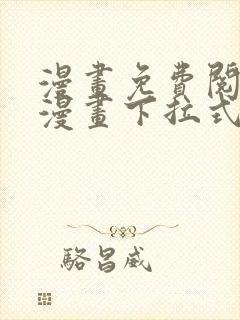 漫畫免費閱
漫畫下拉式
駱昌威